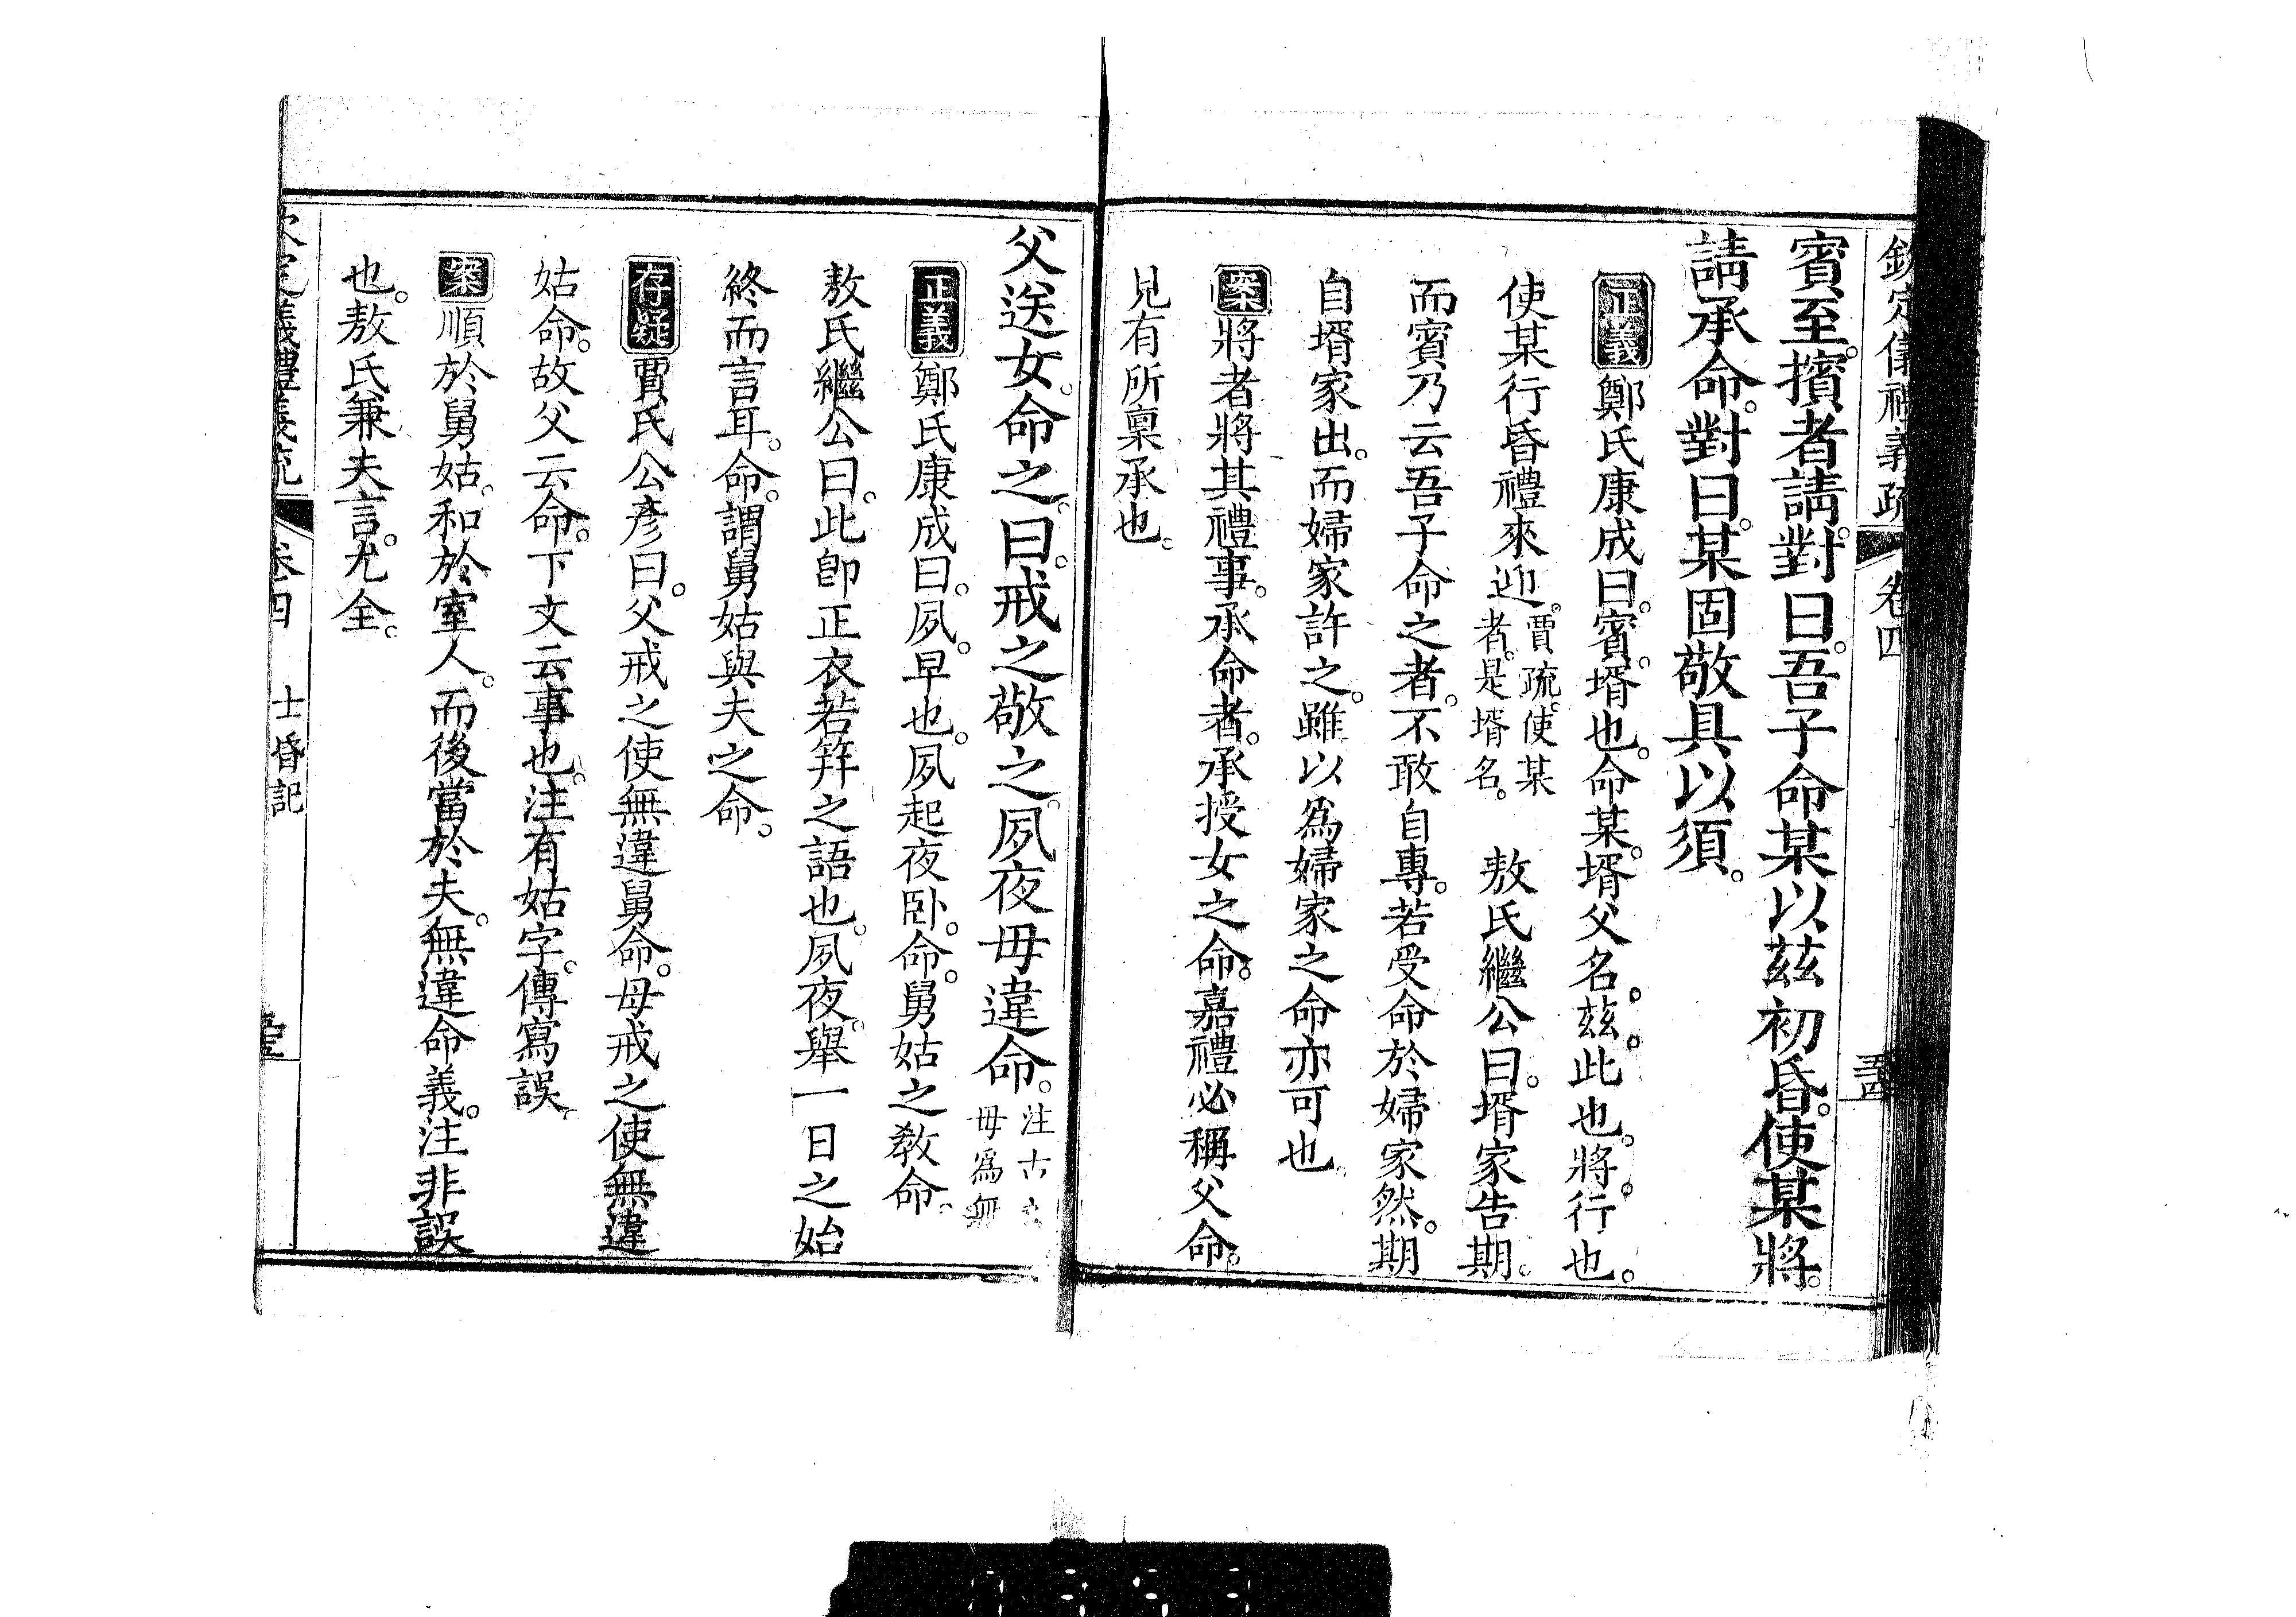 欽定儀禮義疏 卷四
賓至擯者請對曰吾子命某以茲初昏使某將
請承命對曰某固敬具以須
正義鄭氏康成曰賓壻也命某壻父名茲此也將行也
使某行昏禮來迎賈疏使某者是壻名 敖氏繼公曰壻家告期
而賓乃云吾子命之者不敢自專若受命於婦家然期
自壻家出而婦家許之雖以爲婦家之命亦可也
案將者將其禮事承命者承授女之命嘉禮必稱父命
見有所稟承也
父送女命之曰戒之敬之夙夜毋違命注古文毋爲無
正義鄭氏康成曰夙早也夙起夜卧命舅姑之教命
敖氏繼公曰此卽正衣若笄之語也夙夜舉一日之始
終而言耳命謂舅姑與夫之命
存疑賈氏公彥曰父戒之使無違舅命母戒之使無違
姑命故父云命下文云事也注有姑字傳寫誤
案順於舅姑和於室人而後當於夫無違命義注非誤
也敖氏兼夫言尤全
欽定義禮義疏 卷四 士昏記